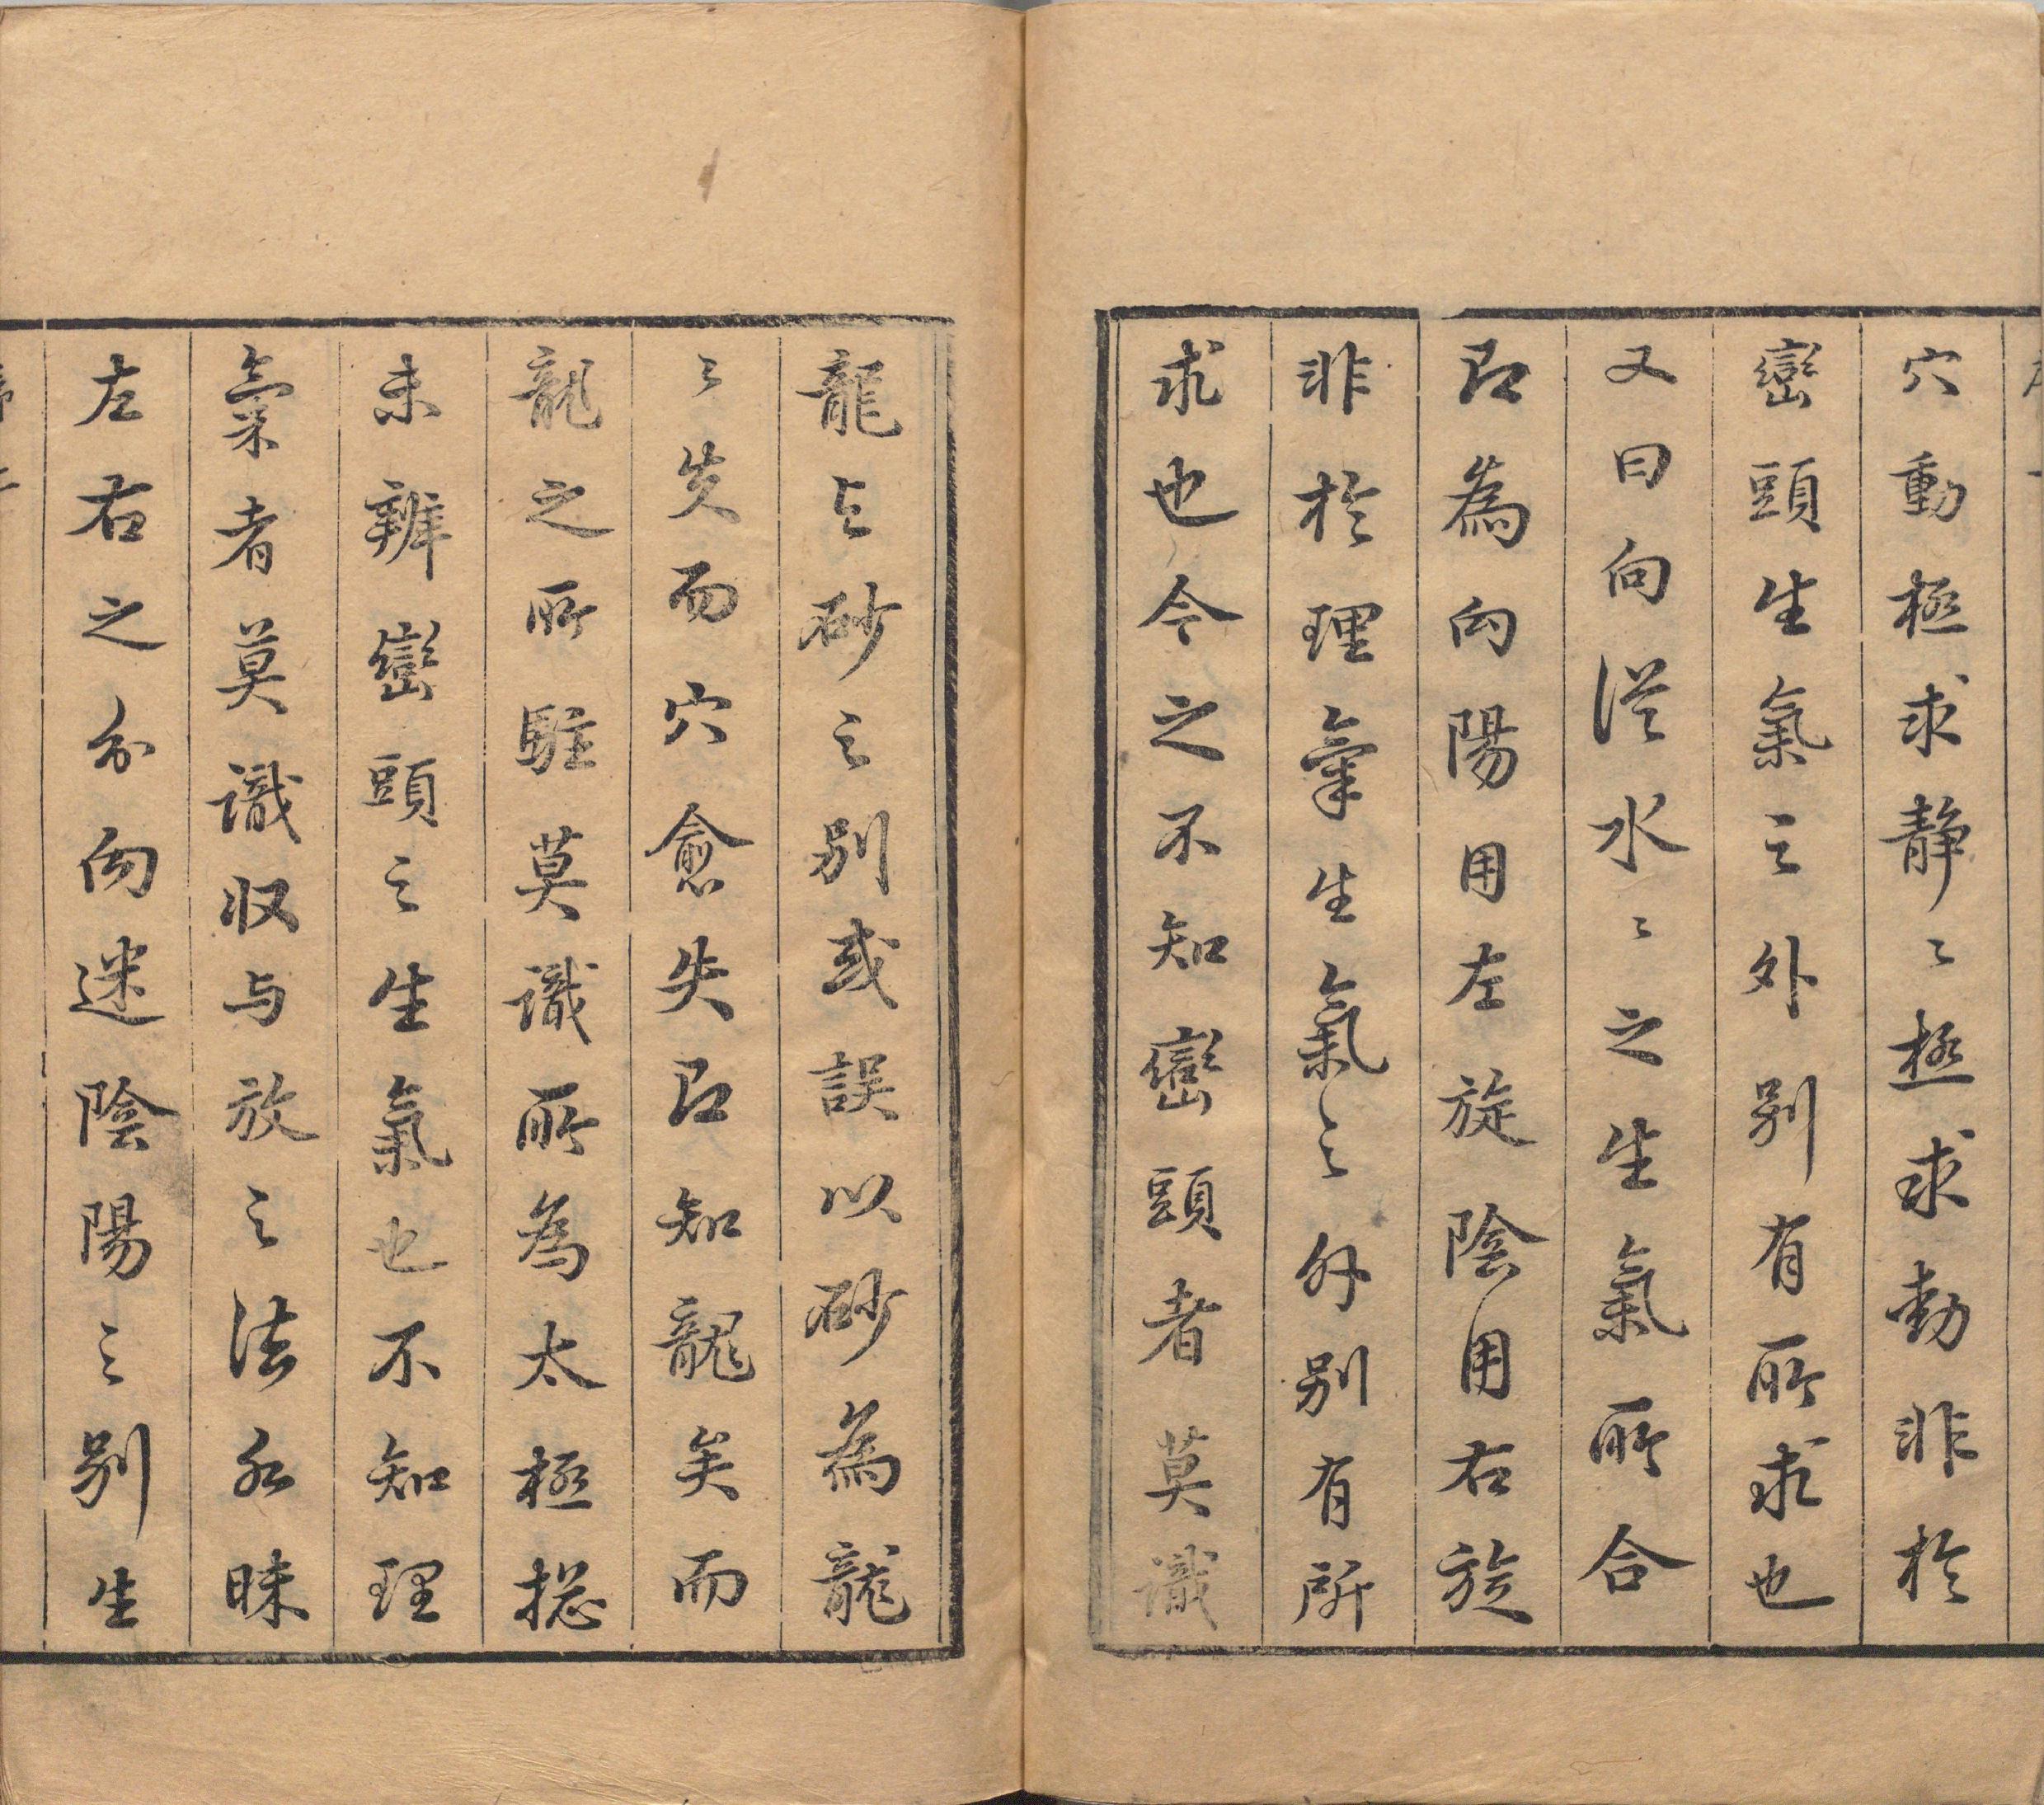 穴動極求靜〻極求動非於
巒頭生氣之外別有所求也
又曰向從水〻之生氣所合
即為向陽用左旋陰用右旋
非於理氣生氣之外別有所
求也今之不知巒頭者莫識
龍與砂之別或誤以砂為龍
〻失而穴愈失即知龍矣而
龍之所駐莫識所為太極總
未辨巒頭之生氣也不知理
氣者莫識收与放之法水昧
左右之分向迷陰陽之別生